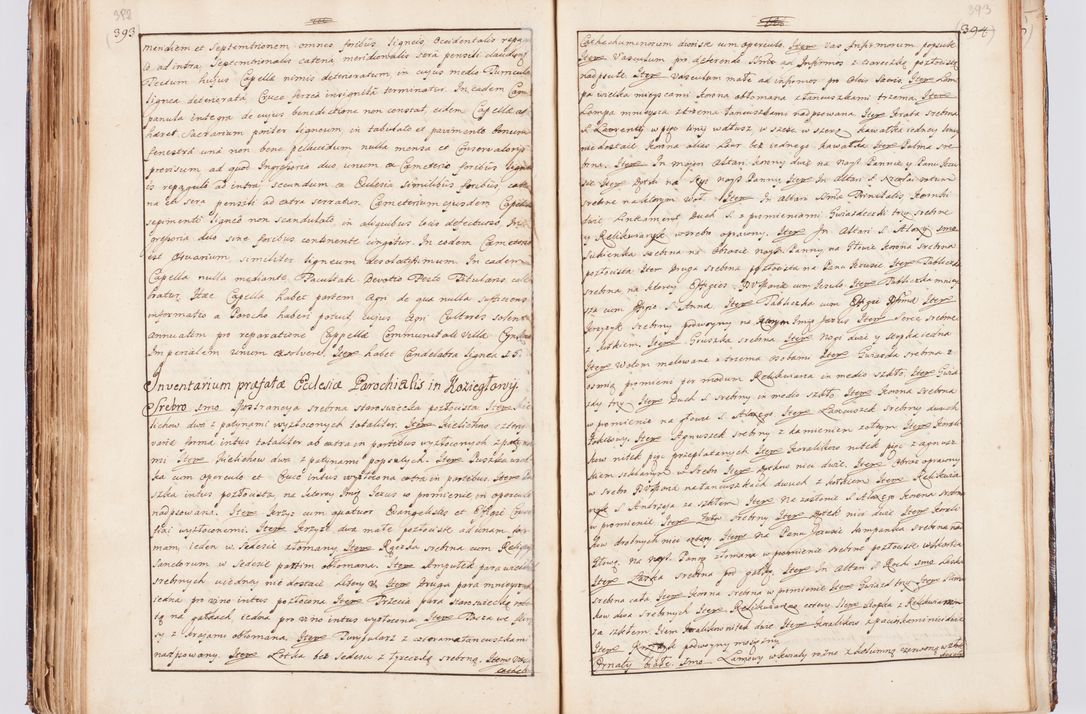 392
(393)
meridiem et Septemtrionem omnes foribus ligneis Occidentalis repagu
lo ad intra Septemtrionalis catena meridionalis sera pensili claudit
Tectum hujus Capella nimis deterioratum in cujus medio Turricula
lignea deteriorata Cruce ferrea insignita terminatur. In eadem Cam
panula integra de cujus benedictione non constat, eidem Capella ad
haret Sacrarium pariter ligneum in tabulato et pavimento bonum
fenestra una non bene pellucidum nulla mensa et Conservatorio
provisum ad quod Ingressoria duo unum ex Cameterio foribus ligne
is repagulo ad intra secundum ex Ecclesia similibus foribus cate
na ex sera pensili ad extra serratur. Cameterium ejusdem Capella
segimenti ligneo non scandulato in aliquibus locis defectuoso In
gressoria duo sine foribus continente cingitur. In eodem Cameterio
est Ossuarium similiter ligneum desolatissimum. In eadem
Capella nulla mediante Facultate Devotio Festo Titulari cele
bratur. Hac Capella habet partem Agri de qua nulla sufficiens
informatio a Parocho haberi potuit cujus Agri Cultores solent
annuatim pro reparatione Cappella Communitati Villa Cynkow
Imperialem unum exsolvere. Item habet Candelabra lignea 25.
Inventarium præfatæ Ecclesiæ Parochialis in Koziegłowy.
Srebro smo Monstrancya srebrna staroswiecka pozłocista Item Kie
lichow dwa z patynami wyzłoconych totaliter. Item Kielichow cztery
varia forma intus totaliter ab extra in partibus wyzłoconych z patyna
mi Item Kielichow dwa z patynami popsutych. Item Puszka wiel
ka cum operculo et Cruce intus wyzłocona extra in partibus. Item Pu
szka intus pozłocista, na ktorey Imię Jezus w promienie in operculo
nadpsowana. Item Krzyz cum quatuor Evangelistis et Effigie Cruci
fixi wyzłoconemi. Item Krzyze dwa małe pozłociste ad unam for
mam, ieden w sedesie złomany. Item Rączka srebrna cum Reliquiis
Sanctorum w Sedesie partim obłomana. Item Ampułek para wielkich
srebrnych u iedney nie dostaie slowy V. Item Druga para mnieysza
iedna pro vino intus pozłocona Item Trzecia para staroswiecka robo
tą na gałkach, iedna pro vino intus wyzłocona. Item Tacza we kwia
ty z krajami obłomana. Item Turybularz z czterema łancuszkami
nadpsowany. Item Łodka bez sedesu z łyzeczką srebrną. Item Vas
catech
393
(394)
Cathechumenorum dwoiste cum operculo. Item Vas Infirmorum popsute
Item Vasculum pro deferendo SSmo ad Infirmos z czareczką pozłocistą
nadpsute. Item Vasculum małe ad infirmos pro Oleis Sacris. Item Lam
pa wielka mieyscami Korona obłomana z łancuszkami trzema. Item
Lampa mnieysza z trzema łancuszkami nadpsowana. Item Kratá srebrna
S. Laurentij
nie dostaie Korona alias Laur bez iednego kawałka Item Palma sre
brna. Item In majori Altari Korony dwie na Nayś. Pannie y Panu Jezu
sie Item
srebrne na ktorym Item In Altari SSma Trinitatis, Koronki
dwie Linkament Duch S. z promieniami Gwiazdeczki trzy srebrne
y Relikwiarzyk w srebro oprawny. Item In Altari S. Aloizy smo
Sukienka srebrna na Obrazie Nayś. Panny na Głowie Korona srebrna
pozłocista Item Druga srebrna pozłocista na Panu Jezusie Item Tabliczka
srebrna na ktorey Effigies B.V. Maria cum Jesulo Item Tabliczka mniey
sza cum Effigie S. Anna Item Tabliczka cum Effigie Item
Krzyzyk srebrny podwoyny na ktorym Imię Jezus Item Serce srebrne
z sutkiem. Item Gruszka srebrna. Item Nogi dwie y stopka iedna
Item Wotum malowane z trzema osobami Item Gwiazda srebrna z
osmią promieni per modum Relikwiarza in medio szkło. Item Gwia
zdy trzy Item Duch S. srebrny in medio szkło. Item Korona srebrna
w promienie na głowie S. Alexego Item Łancuszek srebrny dwoch
łokciowy. Item Agnuszek srebrny z kamieniem zołtym Item Korali
kow nitek pięc przeplatanych Item Koralikow nitek pięc z agnusz
kiem szklannym w Srebro Item Perełek nici dwie. Item Obraz oprawny
w srebro B.V. Maria na łancuszkach dwuch z sutkiem Item Relikwia
rzyk S. Andrzeja za szkłem Item Na zasłonie S. Alexego Korona srebrna
w promienie Item Zęby srebrny Item Perełek nici dwie Item Korali
kow drobnych nici cztery Item Na Panu Jezusie kompanka srebrna na
Głowę na nayś. Panny złomana w promienie srebrne pozłociste wszerokie
Item Laska srebrna pod gałką Item In Altari S. Rocho smo Laska
srebrna cała Item Korona srebrna w promienie Item Gwiazd trzy Item
kow dwa srebrnych Item Relikwiarzow cztery Item Stopka z Relikwiarzem
za szkłem Item Koralikow nitek dwie Item Koralikow z paciorkami nici dwie
Item Krzyzyk podwoyny mosięzny
Ornaty białe smo Lamowy w kwiaty rozne z kolumną czerwoną w złote